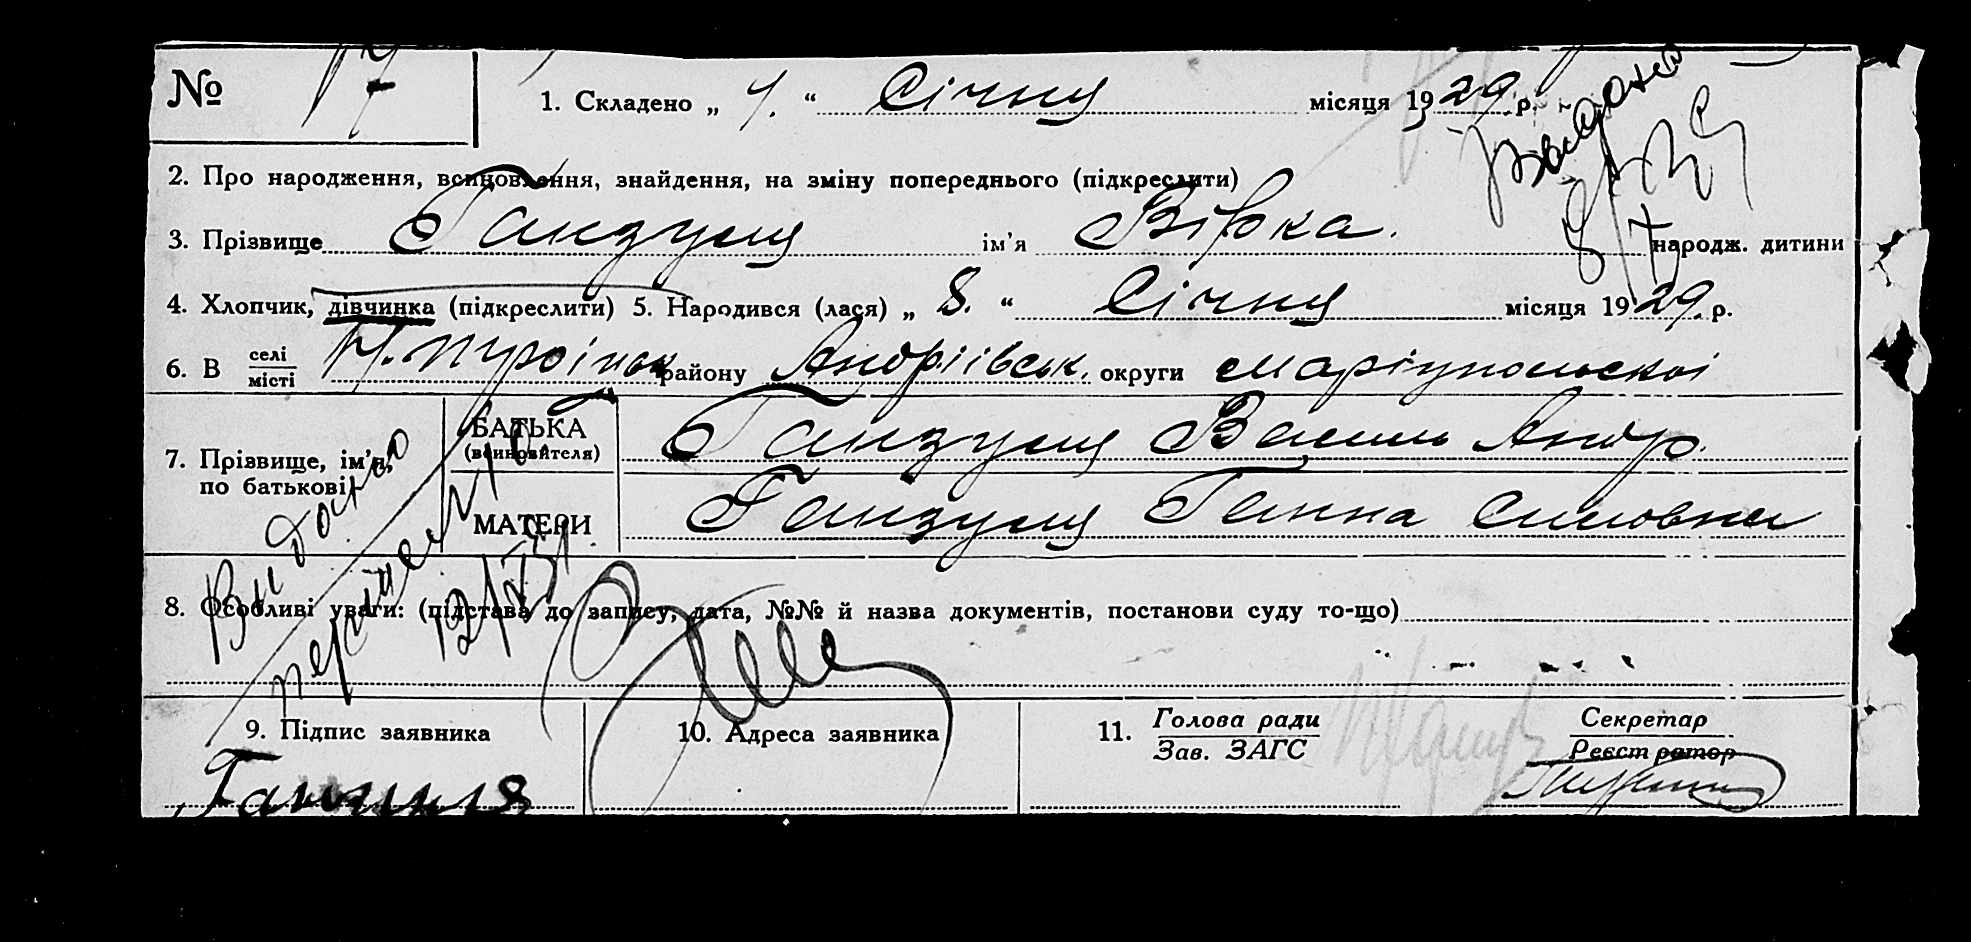 № 17
1. Складено „ 4. “ Січня місяця 1929 р.
Видано
2. Про народження, всиновлення, знайдення, на зміну попереднього (підкреслити)
3. Прізвище Ганзуля ім’я Вірка. народж. дитини
4. Хлопчик, дівчинка (підкреслити) 5. Народився (лася) „ 8. “ Січня місяця 1929. р.
6. В селі/місті району Андріівськ. округи Маріупольскоі
7. Прізвище, ім’я, по батькові
БАТЬКА (всиновителя) Ганзуля Василь Андр.
МАТЕРИ Ганзуля Ганна
8. Особливі уваги: (підстава до запису, дата, №№ й назва документів, постанови суду то-що)
9. Підпис заявника
10. Адреса заявника
11. Голова ради / Зав. ЗАГС
Секретар / Реєстратор